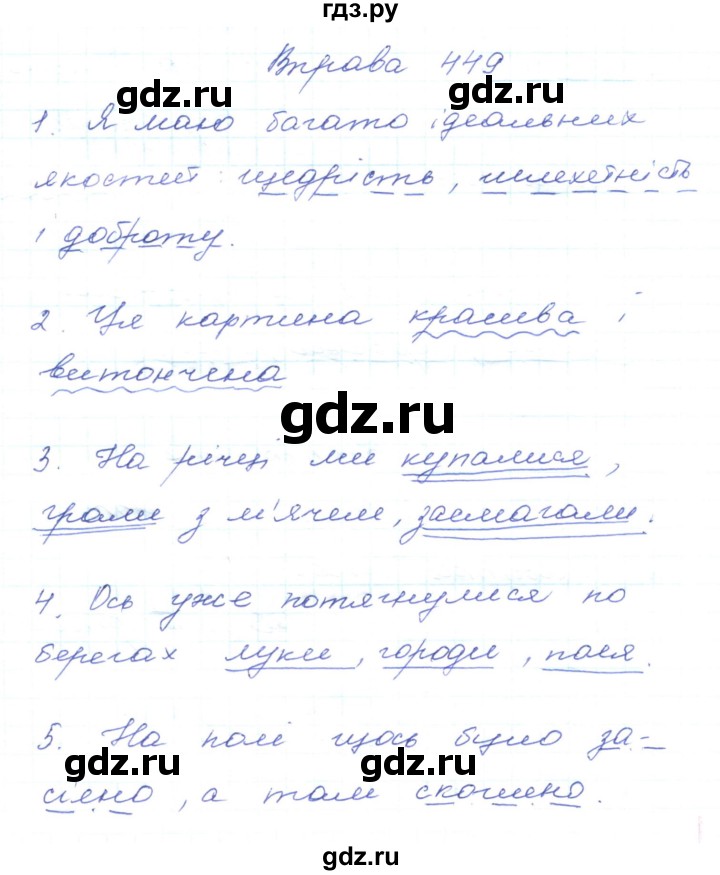 гдз.ру
Вправа 449
gdz.ru
gdz.ru
1. Я маю багато ідеальних
якостей: щедрість, шлехетність
і доброту.
gdz.ru
2. Ця картина красива і
витончена
gdz.ru
3. На річці ми купалися,
грали з м'ячем, засмагали.
gdz.ru
gdz.ru
4. Ось уже потягнулися по
берегах луки, городи, поля.
gdz.ru
5. На полі щось було за-
gdz.ru
gdz.ru
сіяно, а там скошено.
gdz.ru